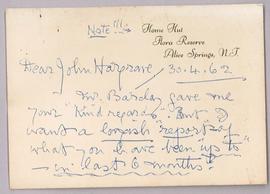 Note !!! →
Home Hut
Flora Reserve
Alice Springs, N.T
Dear John Hargrave, 30.4.62
Mr. Barclay gave me
your "Kind regards" But I
want a longish "report" of
what you have been up to
in last 6 months!